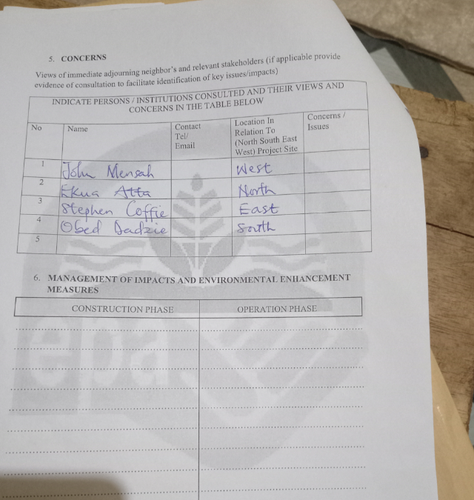 5. CONCERNS
Views of immediate adjourning neighbor's and relevant stakeholders (if applicable provide
evidence of consultation to facilitate identification of key issues/impacts)
INDICATE PERSONS / INSTITUTIONS CONSULTED AND THEIR VIEWS AND
CONCERNS IN THE TABLE BELOW
No Name Contact Tel/ Email Location In Relation To (North South East West) Project Site Concerns / Issues
1 John Mensah West
2 Ekua Atta North
3 Stephen Coffie East
4 Obed Dadzie South
5
6. MANAGEMENT OF IMPACTS AND ENVIRONMENTAL ENHANCEMENT
MEASURES
CONSTRUCTION PHASE OPERATION PHASE
epa